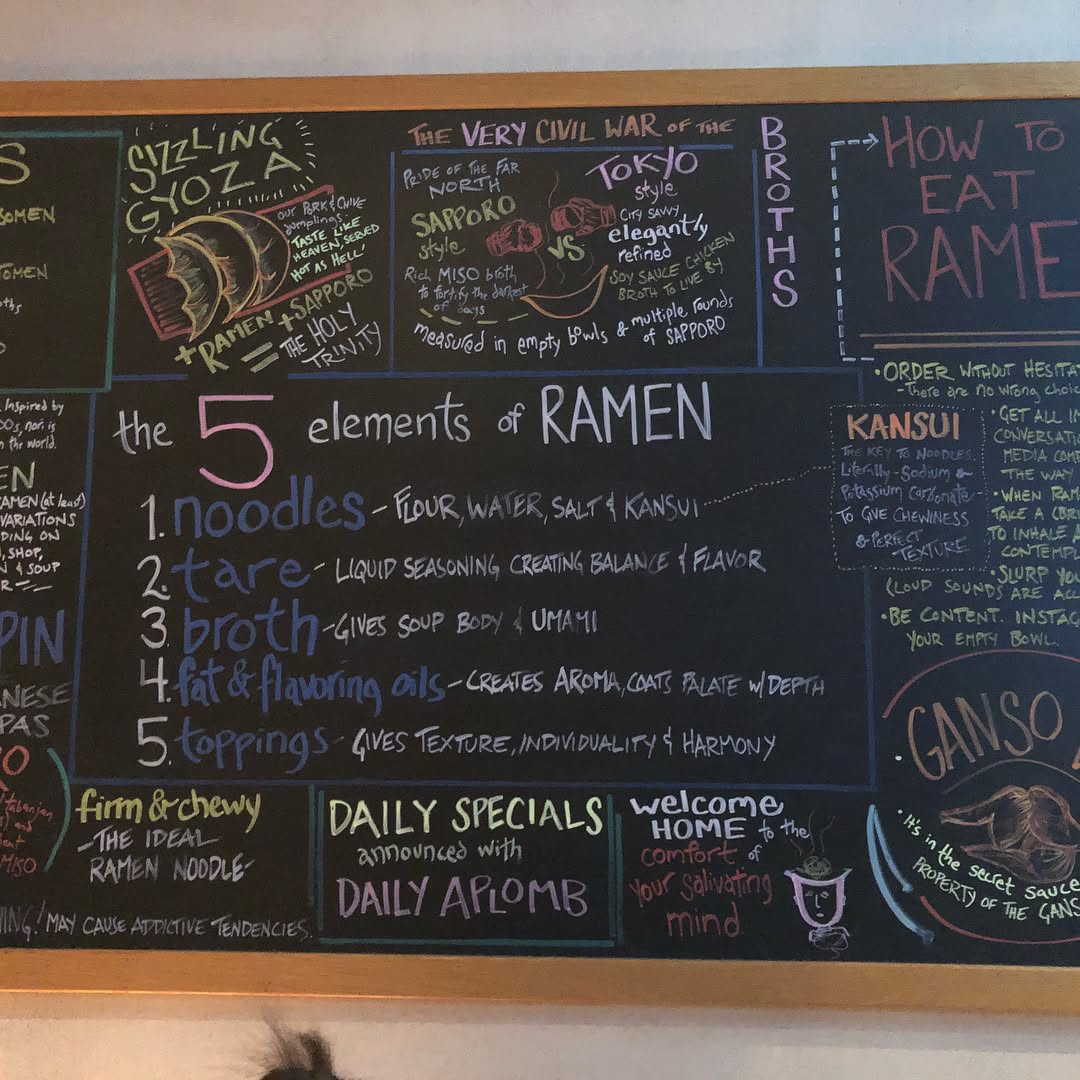 S
SOMEN
TOMEN
Inspired by
nor is
the world.
EN
RAMEN (at least)
VARIATIONS
DING ON
SHOP,
& SOUP
PIN
NESE
PAS
O
and
MISO
SIZZLING
GYOZA
OUR PORK & CHIVE
dumplings
TASTE LIKE
HEAVEN, SERVED
HOT AS HELL
+ RAMEN + SAPPORO
= THE HOLY
TRINITY
THE VERY CIVIL WAR OF THE
BROTHS
PRIDE OF THE FAR
NORTH
SAPPORO
style
Rich MISO broth
to fortify the darkest
of days
VS
TOKYO
style
CITY SAVVY
elegantly
refined
SOY SAUCE CHICKEN
BROTH TO LIVE BY
measured in empty bowls & multiple rounds
of SAPPORO
HOW TO
EAT
RAME
• ORDER WITHOUT HESITA
- There are no wrong choic
• GET ALL IN
CONVERSATI
MEDIA COM
THE WAY
• WHEN RAM
TAKE A
TO INHALE
CONTEMPL
• SLURP YOU
(LOUD SOUNDS ARE ALL
• BE CONTENT. INSTAG
YOUR EMPTY BOWL.
the 5 elements of RAMEN
1. noodles - FLOUR, WATER, SALT & KANSUI
2. tare - LIQUID SEASONING CREATING BALANCE & FLAVOR
3. broth - GIVES SOUP BODY & UMAMI
4. fat & flavoring oils - CREATES AROMA, COATS PALATE W/DEPTH
5. toppings - GIVES TEXTURE, INDIVIDUALITY & HARMONY
KANSUI
THE KEY TO NOODLES.
Literally - Sodium &
Potassium Carbonate
TO GIVE CHEWINESS
& PERFECT
TEXTURE
firm & chewy
- THE IDEAL
RAMEN NOODLE -
NING! MAY CAUSE ADDICTIVE TENDENCIES.
DAILY SPECIALS
announced with
DAILY APLOMB
welcome
HOME to the
comfort of
your salivating
mind
GANSO
• It's in the secret sauce
PROPERTY OF THE GANS